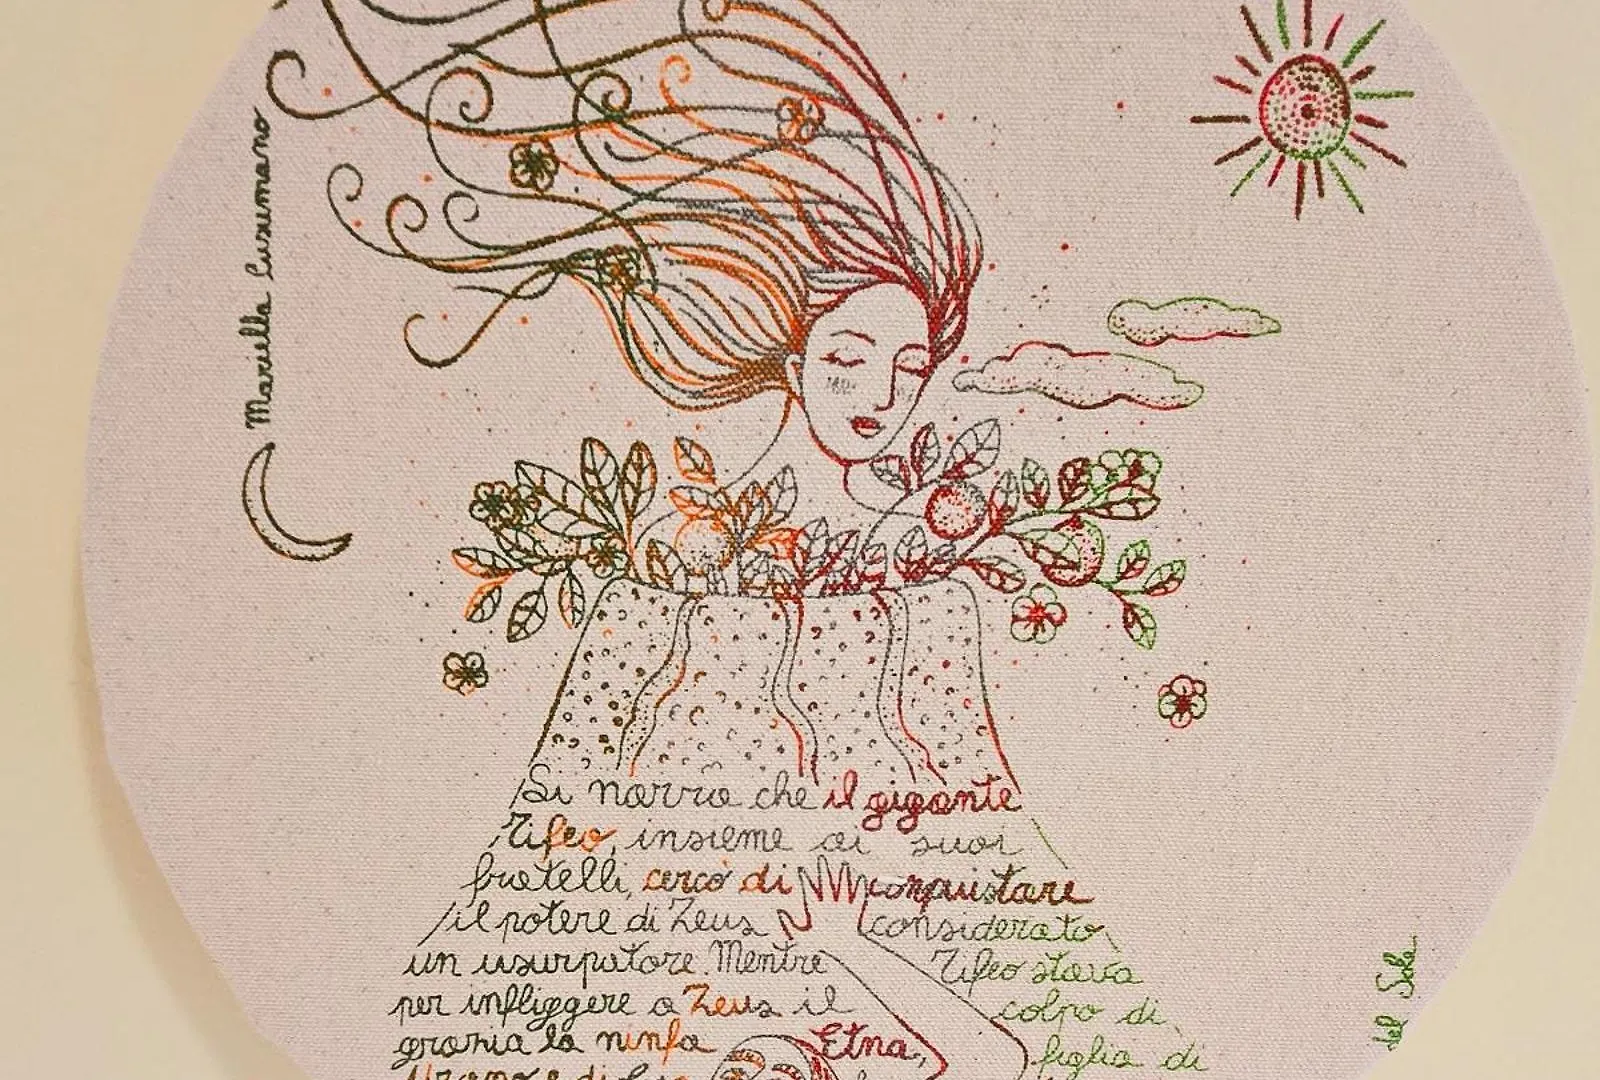 Mariella Cusumano
Si narra che il gigante
Tifeo, insieme ai suoi
fratelli, cercò di conquistare
il potere di Zeus considerato
un usurpatore. Mentre Tifeo stava
per infliggere a Zeus il colpo di
grazia la ninfa Etna, figlia di
Urano e di
del Sole